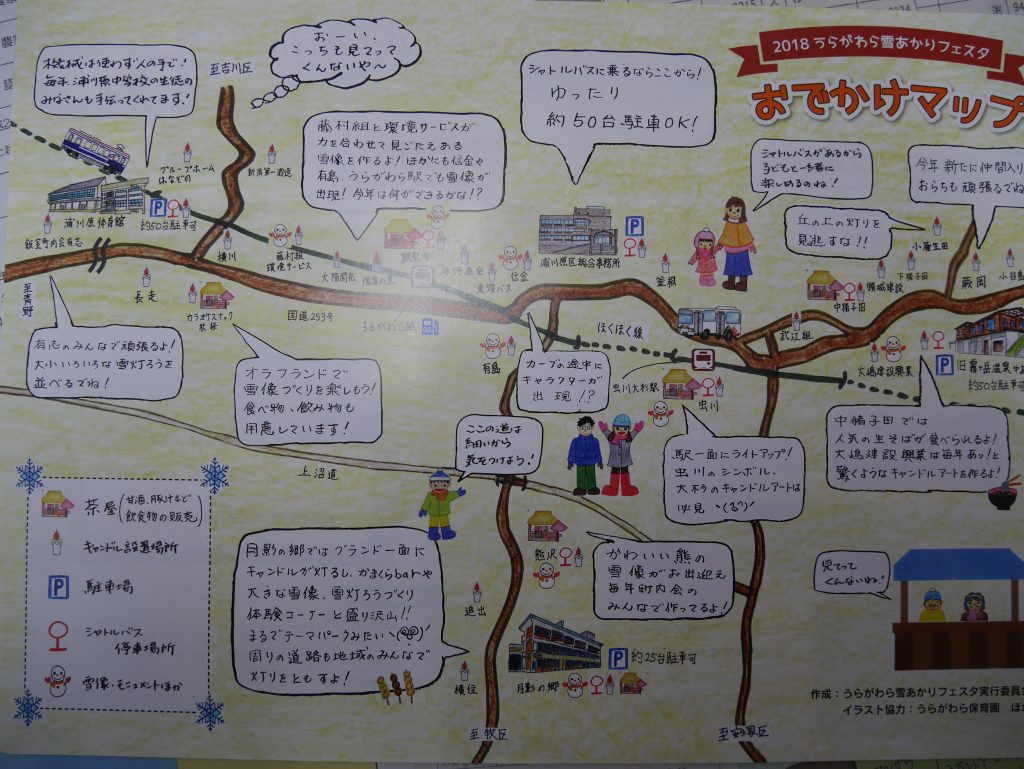 2018 うらがわら雪あかりフェスタ
おでかけマップ
おーい、
こっちも見てって
くんないや～
至吉川区
機械は使わず人の手で!
毎年、浦川原中学校の生徒の
みなさんも手伝ってくれてます!
シャトルバスに乗るならここから!
ゆったり
約50台駐車OK!
藤村組と環境サービスが
力を合わせて見ごたえある
雪像を作るよ!ほかにも信金や
有島、うらがわら駅でも雪像が
出現!今年は何ができるかな!?
シャトルバスがあるから
子どもと一緒に
楽しめるのね!
今年新たに仲間入り
おらちも頑張るでね
丘の上の灯りを
見逃すな!!
グループホーム
はなどの
新潟第一酒造
浦川原体育館
P
約50台駐車可
飯室町内会有志
横川
藤村組
環境サービス
大陽開発
顕聖寺
信金
東頸バス
浦川原区総合事務所
P
釜根
小蒲生田
下猪子田
頸城建設
中猪子田
蕨岡
小谷島
至青野
長走
カラオケスナック
国道253号
うらがわら駅
ほくほく線
武江組
有島
虫川大杉駅
虫川
大嶋建設興業
P
約50台駐車可
有志のみんなで頑張るよ!
大小いろいろな雪灯ろうを
並べるでね!
オラフランドで
雪像づくりを楽しもう!
食べ物、飲み物も
用意しています!
カーブの途中に
キャラクターが
出現!?
ここの道は
細いから
気をつけよう!
駅一面にライトアップ!
虫川のシンボル、
大杉のキャンドルアートは
必見
中猪子田では
人気の生そばが食べられるよ!
大嶋建設興業は毎年あっ!と
驚くようなキャンドルアートを作るよ!
上沼道
茶屋(甘酒、豚汁など
飲食物の販売)
キャンドル設置場所
P 駐車場
シャトルバス
停車場所
雪像・モニュメントほか
月影の郷ではグランド一面に
キャンドルが灯るし、かまくらbarや
大きな雪像、雪灯ろうづくり
体験コーナーと盛り沢山!!
まるでテーマパークみたい
周りの道路も地域のみんなで
灯りをともすよ!
熊沢
かわいい熊の
雪像がお出迎え
毎年町内会の
みんなで作ってるよ!
追出
横住
月影の郷
P 約25台駐車可
至牧区
至安塚区
見てって
くんないね!
作成:うらがわら雪あかりフェスタ実行委員
イラスト協力:うらがわら保育園